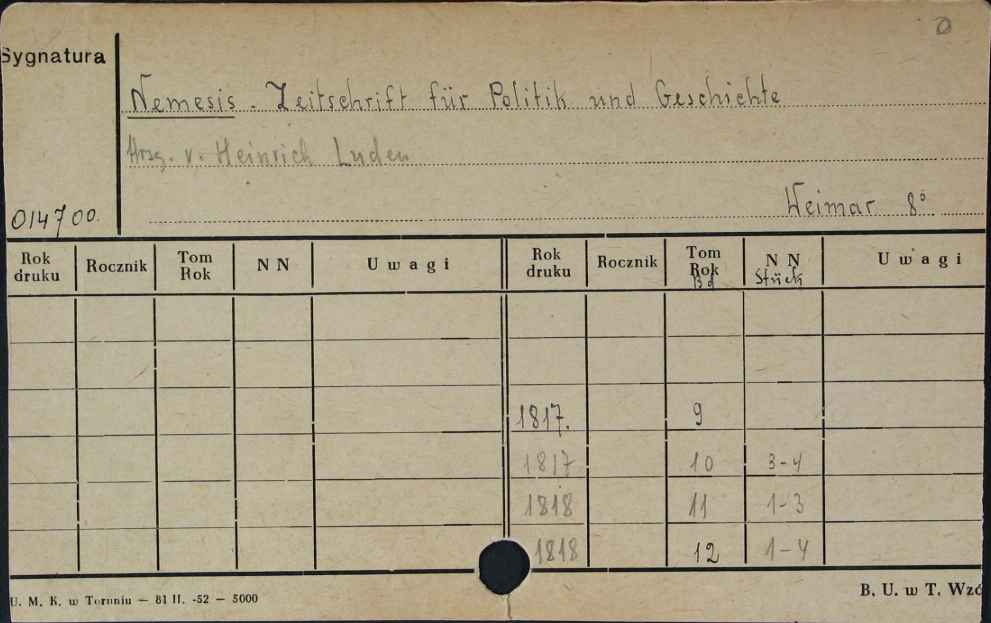 0
Sygnatura
Nemesis. Zeitschrift für Politik und Geschichte
Hrsg. v. Heinrich Luden
Weimar 8°
014700.
Rok druku Rocznik Tom Rok N N Uwagi Rok druku Rocznik Tom Rok Bd N N Stück Uwagi
1817. 9
1817 10 3-4
1818 11 1-3
1818 12 1-4
U. M. K. w Toruniu — 81 II. -52 — 5000
B. U. w T. Wzó